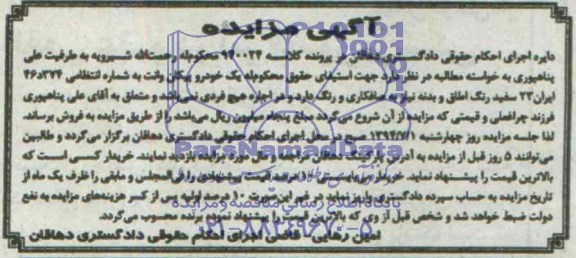 آگهی مزایده
دایره اجرای احکام حقوقی دادگستری دهاقان در پرونده کلاسه محکوم‌له رحمت‌اله شیرویه به طرفیت علی
پناهپوری به خواسته مطالبه در نظر دارد جهت استیفای حقوق محکوم‌له یک خودرو پیکان وانت به شماره انتظامی ۳۷۴د۴۶
ایران۲۳ سفید رنگ اطاق و بدنه نیاز به صافکاری و رنگ دارد و در اجاره هیچ فردی نمی‌باشد و متعلق به آقای علی پناهپوری
فرزند چراغعلی و قیمتی که مزایده از آن شروع می‌گردد مبلغ پنجاه میلیون ریال می‌باشد را از طریق مزایده به فروش برساند.
لذا جلسه مزایده روز چهارشنبه صبح در محل اجرای احکام حقوقی دادگستری دهاقان برگزار می‌گردد و طالبین
می‌توانند ۵ روز قبل از مزایده به آدرس دهاقان مراجعه و از مال مورد مزایده بازدید نمایند. خریدار کسی است که
بالاترین قیمت را پیشنهاد نماید. خریدار فی‌المجلس و مابقی را ظرف یک ماه از
تاریخ مزایده به حساب سپرده دادگستری نماید در غیر این صورت ۱۰ درصد اولیه پس از کسر هزینه‌های مزایده به نفع
دولت ضبط خواهد شد و شخص قبل از وی که بالاترین قیمت را پیشنهاد نموده برنده محسوب می‌گردد.
امین رهایی - قاضی اجرای احکام حقوقی دادگستری دهاقان
ParsNamadData
پایگاه اطلاع رسانی مناقصه و مزایده
۰۲۱-۸۸۳۴۹۶۷۰-۵